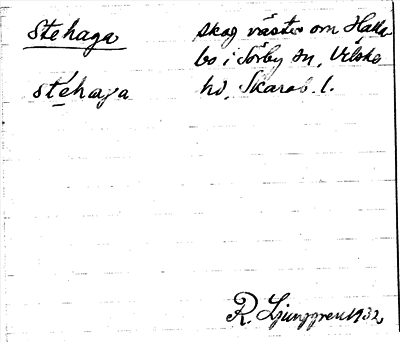 Stehaga
skog väster om Hakla
bo i Torby sn, Vilske
stéhaga
hd, Skarab. l.
R. Ljunggren 1932